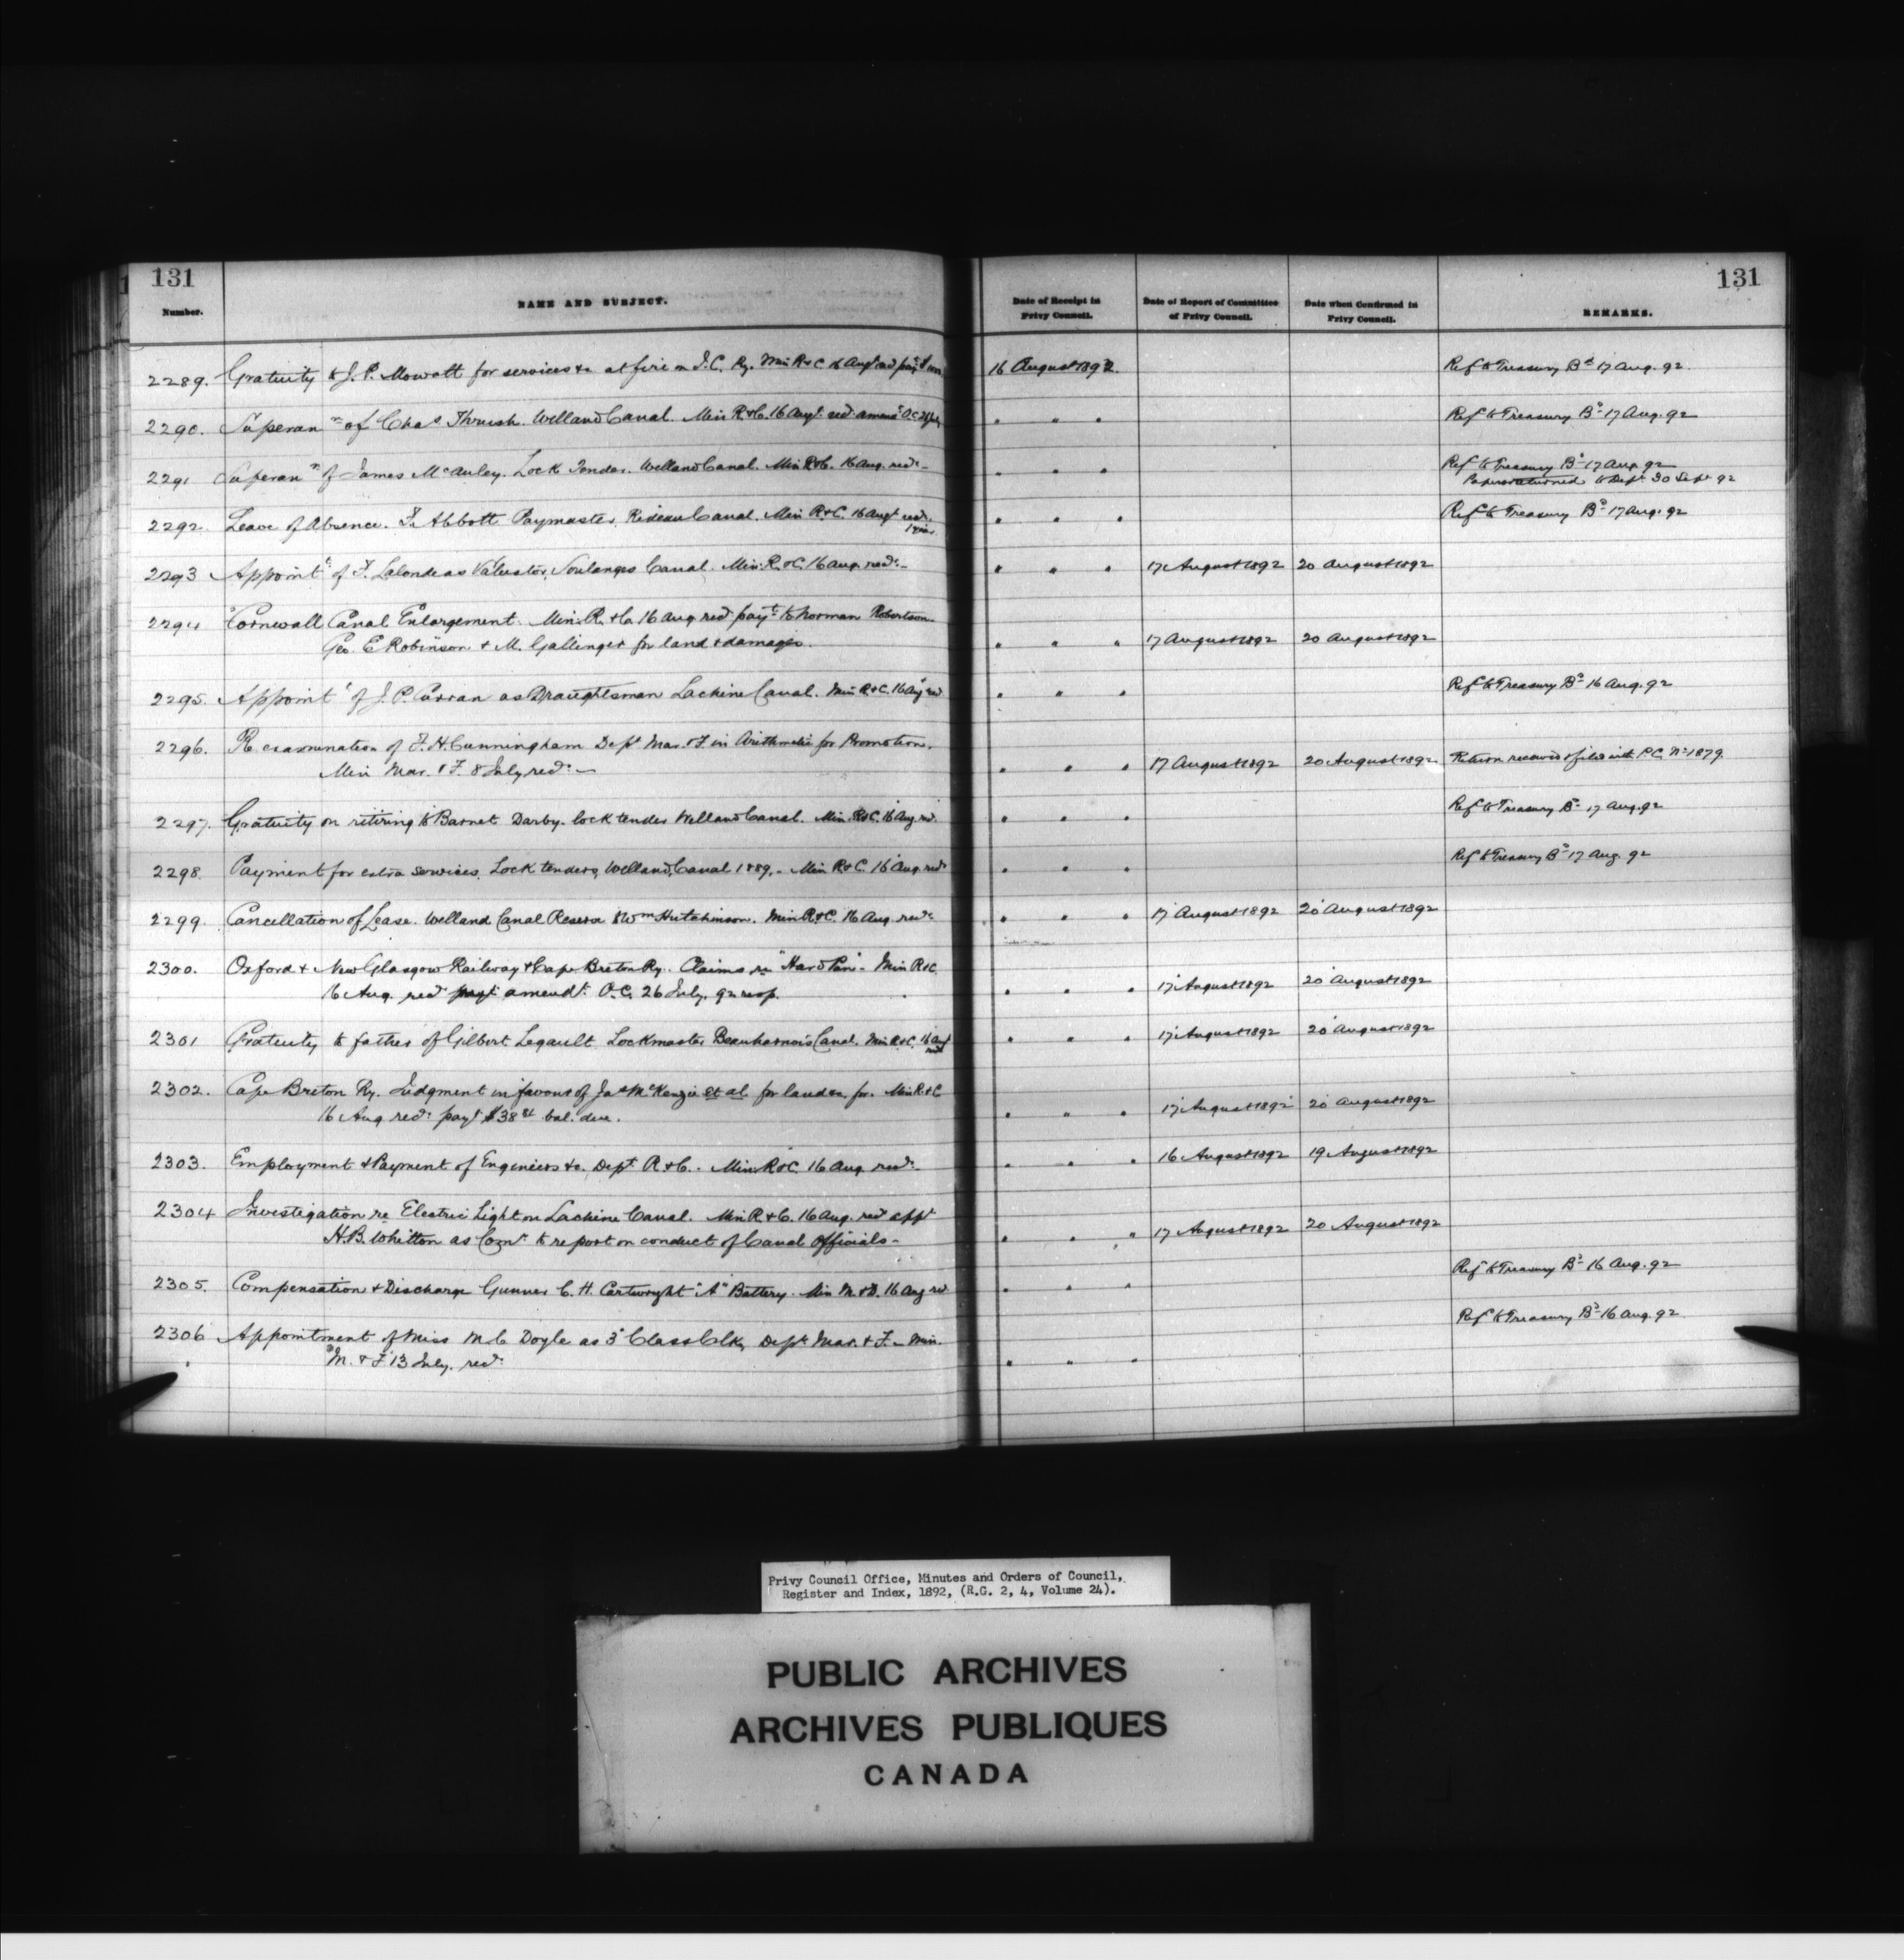 131
131
Number.
NAME AND SUBJECT.
Date of Receipt in Privy Council.
Date of Report of Committee of Privy Council.
Date when Confirmed in Privy Council.
REMARKS.
2289. Gratuity to J. P. Mowatt for services &c at fire on I. C. Ry. Min R & C 16 Augt recd 16 August 1892. Ref to Treasury Bd 17 Aug. 92.
2290. Superan n of Chas Thrush. Welland Canal. Min R. & C. 16 Augt recd " " " Ref to Treasury Bd 17 Aug. 92
2291 Superan n of James McAuley. Lock Tender. Welland Canal. Min R & C. 16 Aug. recd " " " Ref to Treasury Bd 17 Aug. 92
Papers returned to Dept 30 Sept 92
2292. Leave of Absence. F. Abbott Paymaster, Rideau Canal. Min R. & C. 16 Augt recd. " " " Ref to Treasury Bd 17 Aug. 92
2293 Appoint t of F. Lalonde as Valuator, Soulanges Canal. Min. R. & C. 16 Aug. recd. " " " 17 August 1892 20 August 1892
2294 Cornwall Canal Enlargement. Min R. & C. 16 Aug recd payt to Norman Robertson.
Geo. E Robinson & M. Gallinger for land & damages. " " " 17 August 1892 20 August 1892
2295. Appoint t of J. P. Curran as Draughtsman Lachine Canal. Min R & C. 16 Aug recd " " " Ref to Treasury Bd 16 Aug. 92
2296. Re examination of F. H. Cunningham Dept Mar. & F in Arithmetic for Promotion.
Min Mar. & F. 8 July recd. " " " 17 August 1892 20 August 1892 Return received & filed with P.C. No 1879.
2297. Gratuity on retiring to Barnet Darby. lock tender Welland Canal. Min. R & C. 16 Aug. recd. " " " Ref to Treasury Bd 17 Aug. 92
2298. Payment for extra services, Lock tenders, Welland Canal 1889. Min R & C. 16 Aug. recd " " " Ref to Treasury Bd 17 Aug. 92
2299. Cancellation of Lease. Welland Canal Reserve to Wm Hutchinson. Min R & C. 16 Aug. recd " " " 17 August 1892 20 August 1892
2300. Oxford & New Glasgow Railway & Cape Breton Ry. Claims re "Hard Pan". Min R & C.
16 Aug. recd amendt. O.C. 26 July. 92 resp. " " " 17 August 1892 20 August 1892
2301 Gratuity to father of Gilbert Legault Lockmaster Beauharnois Canal. Min R & C. 16 Augt recd " " " 17 August 1892 20 August 1892
2302. Cape Breton Ry. Judgment in favour of Jas McKenzie et al for land &c. for. Min R & C
16 Aug recd. payt $38 bal. due. " " " 17 August 1892 20 August 1892
2303. Employment & Payment of Engineers &c. Dept R & C. Min R & C. 16 Aug. recd. " " " 16 August 1892 19 August 1892
2304 Investigation re Electric Light on Lachine Canal. Min R. & C. 16 Aug. recd appt
H. B. Whitton as Comr. to report on conduct of Canal Officials. " " " 17 August 1892 20 August 1892
2305. Compensation & Discharge Gunner C. H. Cartwright "A" Battery. Min M. & D. 16 Aug recd " " " Ref to Treasury Bd 16 Aug. 92
2306 Appointment of Miss M C Doyle as 3d Class Clk, Dept Mar. & F. Min.
M. & F. 13 July. recd. " " " Ref to Treasury Bd 16 Aug. 92
Privy Council Office, Minutes and Orders of Council,
Register and Index, 1892, (R.G. 2, 4, Volume 24).
PUBLIC ARCHIVES
ARCHIVES PUBLIQUES
CANADA